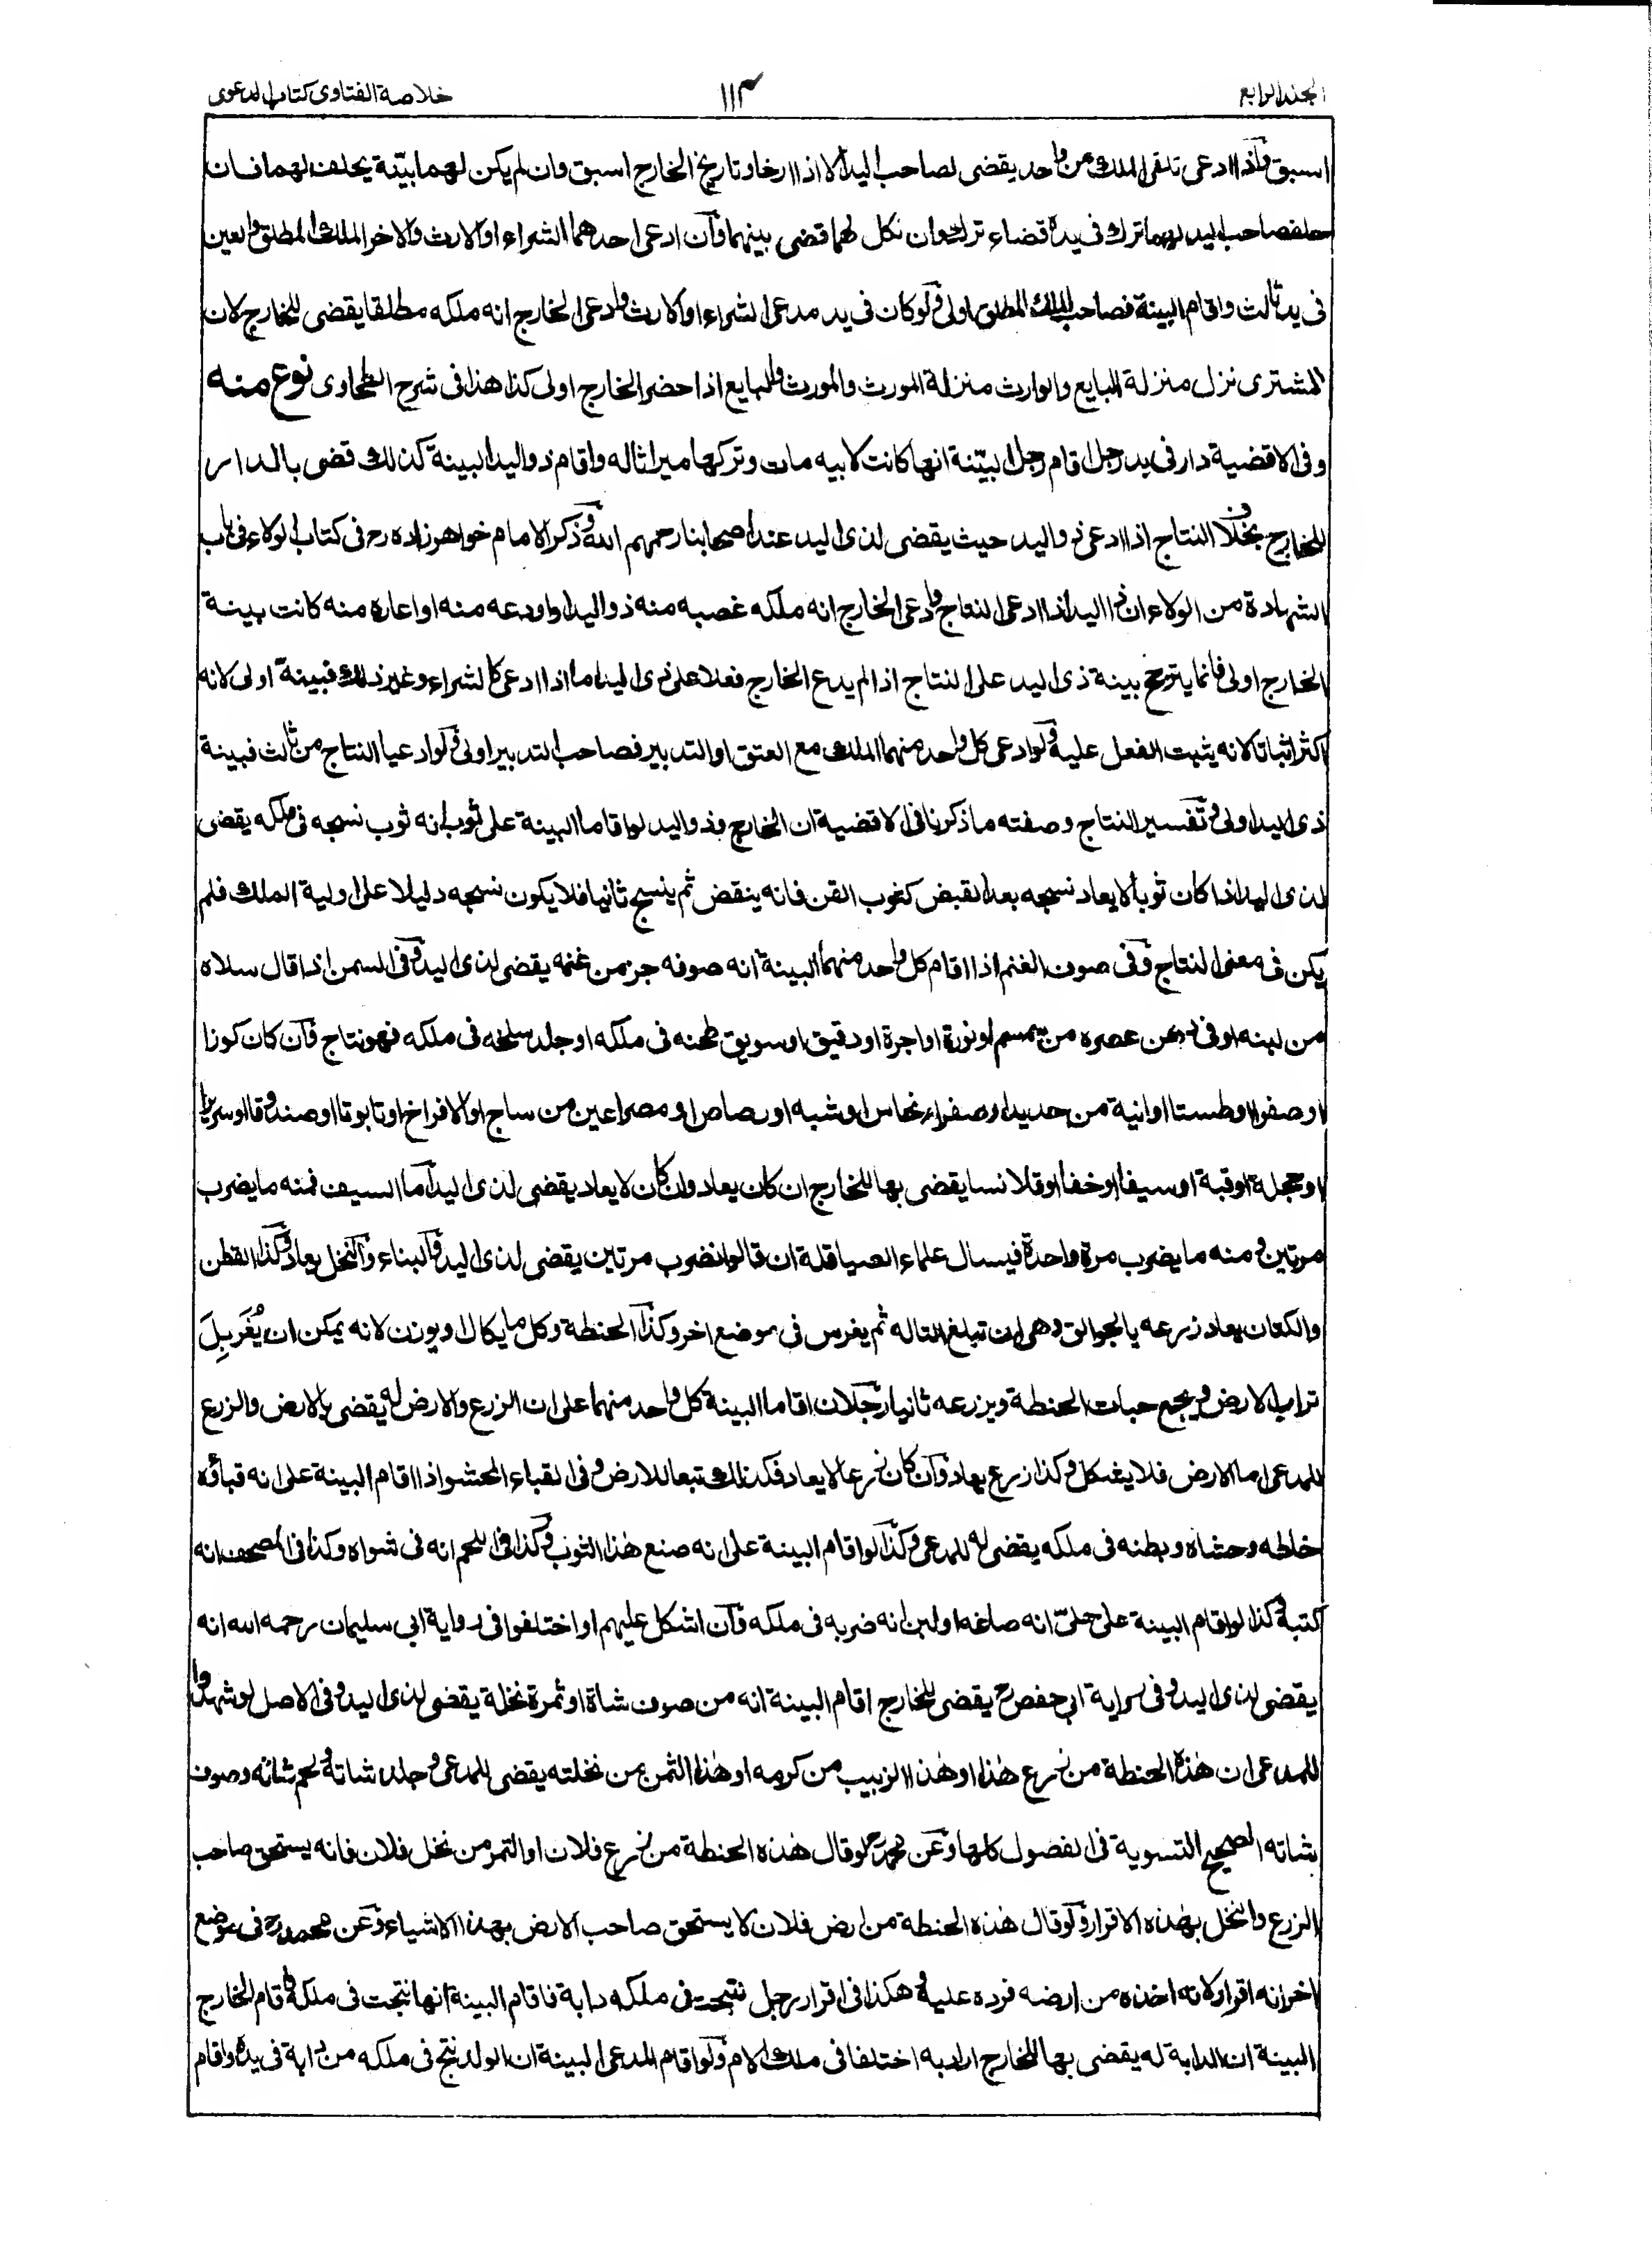 الجلد الرابع
١١٣
خلاصة الفتاوى كتاب الدعوى
اسبق واذا ادعى تلقى الملك من واحد يقضى لصاحب اليد الا اذا ارخا وتاريخ الخارج اسبق وان لم يكن لهما بينة يحلف لهما فان
حلف صاحب اليد لهما ترك فى يده قضاء ترك وان نكل لهما قضى بينهما وان ادعى احدهما الشراء او الارث والاخر الملك المطلق والعين
فى يد ثالث واقام البينة فصاحب الملك المطلق اولى ولو كان فى يد مدعى الشراء او الارث وادعى الخارج انه ملكه مطلقا يقضى للخارج لان
المشترى نزل منزلة البايع والوارث منزلة المورث والمورث والبايع اذا حضر الخارج اولى كذا هذا فى شرح الطحاوى نوع منه
وفى الاقضية دار فى يد رجل اقام رجل البينة انها كانت لابيه مات وتركها ميراثا له واقام ذو اليد البينة كذلك قضى بالدار
للخارج بخلاف النتاج اذا ادعى ذو اليد حيث يقضى لذى اليد عند اصحابنا رحمهم الله وذكر الامام خواهر زاده رح فى كتاب الولاء فى باب
الشهادة من الولاء ان ذا اليد اذا ادعى النتاج وادعى الخارج انه ملكه غصبه منه ذو اليد او اودعه منه او اعاره منه كانت بينة
الخارج اولى فانما يترجح بينة ذى اليد على النتاج اذا لم يدع الخارج فعلا على ذى اليد اما اذا ادعى كالشراء وغير ذلك فبينة اولى لانه
اكثر اثباتا لانه يثبت الفعل عليه ولو ادعى كل واحد منهما الملك مع العتق او التدبير فصاحب التدبير اولى ولو ادعيا النتاج من ثالث فبينة
ذى اليد اولى وتفسير النتاج وصفته ما ذكرنا فى الاقضية ان الخارج وذو اليد لو اقاما البينة على ثوب انه ثوب نسجه فى ملكه يقضى
لذى اليد اذا كان ثوبا لا يعاد نسجه بعد النقض كثوب القز فانه ينقض ثم ينسج ثانيا فلا يكون نسجه دليلا على اولية الملك فلم
يكن فى معنى النتاج وفى صوف الغنم اذا اقام كل واحد منهما البينة انه صوفه جز من غنمه يقضى لذى اليد وفى السمن اذا قال سلاه
من لبنه او فى دهن عصره من سمسم او نورة او اجرة او دقيق او سويق طحنه فى ملكه او جلد سلخه فى ملكه فهو نتاج وان كان كوزا
او صفرا او طستا او انية من حديد او صفر او نحاس او شبه او رصاص او مصراعين من ساج او الافراخ او تابوتا او صندوقا او سريرا
او حجلة او قبة او سيفا او خفا او قلانسا يقضى بها للخارج ان كان يعاد وان كان لا يعاد يقضى لذى اليد اما السيف فمنه ما يضرب
مرتين ومنه ما يضرب مرة واحدة فيسال علماء الصياقلة ان قالوا نضرب مرتين يقضى لذى اليد والبناء والنخل يعاد وكذا القطن
والكتان يعاد زرعه بالجوالق وهى ان تبلغ التاله ثم يغرس فى موضع اخر وكذا الحنطة وكل ما يكال ويوزن لانه يمكن ان يُغَربِلَ
تراب الارض ويجمع حبات الحنطة ويزرعه ثانيا رجلان اقاما البينة كل واحد منهما على ان الزرع والارض له يقضى بالارض والزرع
للمدعى اما الارض فلا يشكل وكذا زرع يعاد وان كان زرعا لا يعاد فكذلك تبعا للارض وفى القباء المحشو اذا اقام البينة على انه قباؤه
خاطه وحشاه وبطنه فى ملكه يقضى له للمدعى وكذا لو اقام البينة على انه صنع هذا الثوب وكذا فى اللحم انه فى شواه وكذا فى المصحف انه
كتبه وكذا لو اقام البينة على حلىّ انه صاغه او لبن انه ضربه فى ملكه وان اشكل عليهم او اختلفوا فى رواية ابى سليمان رحمه الله انه
يقضى لذى اليد وفى رواية ابى حفص رح يقضى للخارج اقام البينة انه من صوف شاة او ثمرة نخلة يقضى لذى اليد وفى الاصل لو شهدوا
للمدعى ان هذه الحنطة من زرع هذا او هذا الزبيب من كرمه او هذا الثمن من نخلته يقضى للمدعى وجلد شاته ولحم شاته وصوف
شاته الصحيح التسوية فى الفصول كلها وعن محمد رح لو قال هذه الحنطة من زرع فلان او التمر من نخل فلان فانه يستحق صاحب
الزرع والنخل بهذه الاقرار ولو قال هذه الحنطة من ارض فلان لا يستحق صاحب الارض بهذا الاشياء وعن محمد رح فى موضع
اخر انه اقرار لانه اخذه من ارضه فرده عليه وهكذا فى اقرار رجل نتجت فى ملكه دابة فاقام البينة انها نتجت فى ملكه واقام الخارج
البينة ان الدابة له يقضى بها للخارج اراد به اختلفا فى ملك الام ولو اقام المدعى البينة ان الولد نتج فى ملكه من دابة فى يده واقام